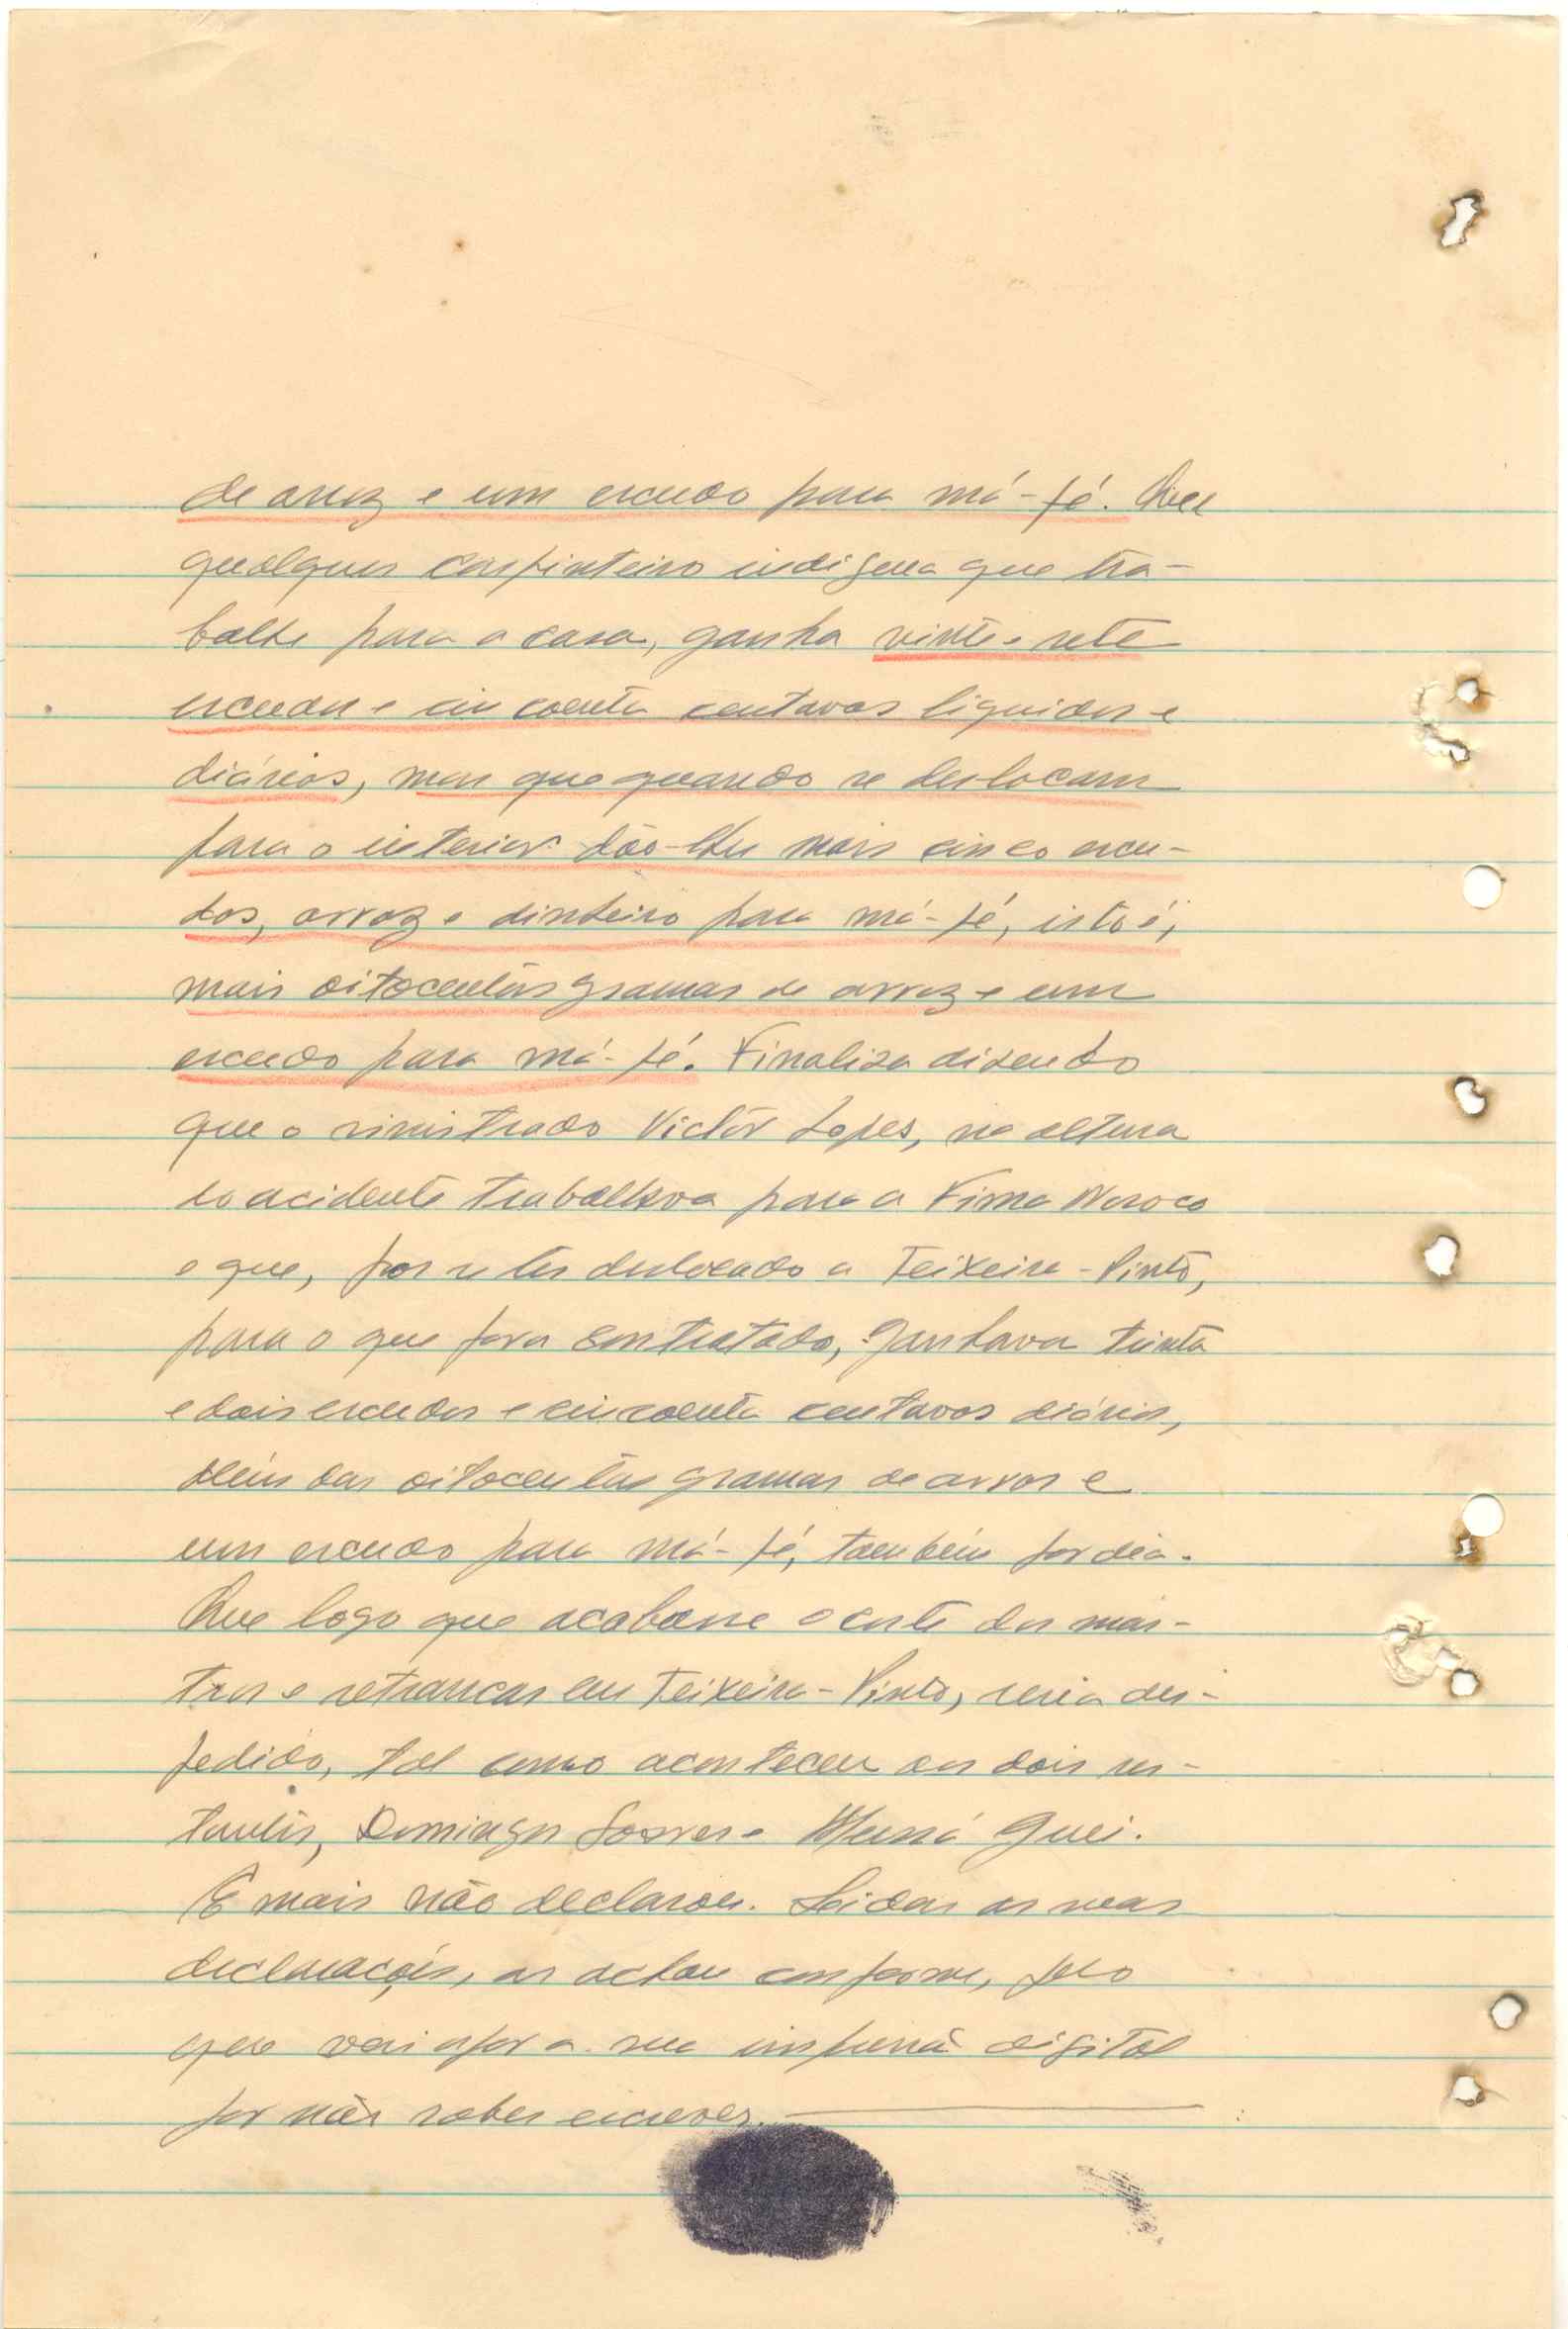 de arroz e um escudo para má-fé. Que
qualquer carpinteiro indigena que tra-
balhe para a casa, ganha vinte e sete
escudos e cincoenta centavos liquidos e
diários, mas que quando se deslocam
para o interior dão-lhes mais cinco escu-
dos, arroz e dinheiro para má-fé, isto é,
mais oitocentas gramas de arroz e um
escudo para má-fé. Finaliza dizendo
que o sinistrado Victór Lopes, na altura
do acidente trabalhava para a Firma Nosoco
e que, por se ter deslocado a Teixeira-Pinto,
para o que fora contratado, ganhava trinta
e dois escudos e cincoenta centavos diários,
além das oitocentas gramas de arros e
um escudo para má-fé, também por dia.
Que logo que acabasse o corte dos mas-
tros e retrancas em Teixeira-Pinto, seria des-
pedido, tal como aconteceu aos dois res-
tantes, Domingos Soares e Guei.
E mais não declarou. Lidas as suas
declarações, as achou conforme, pelo
que vai apor a sua impressã digital
por não saber escrever.